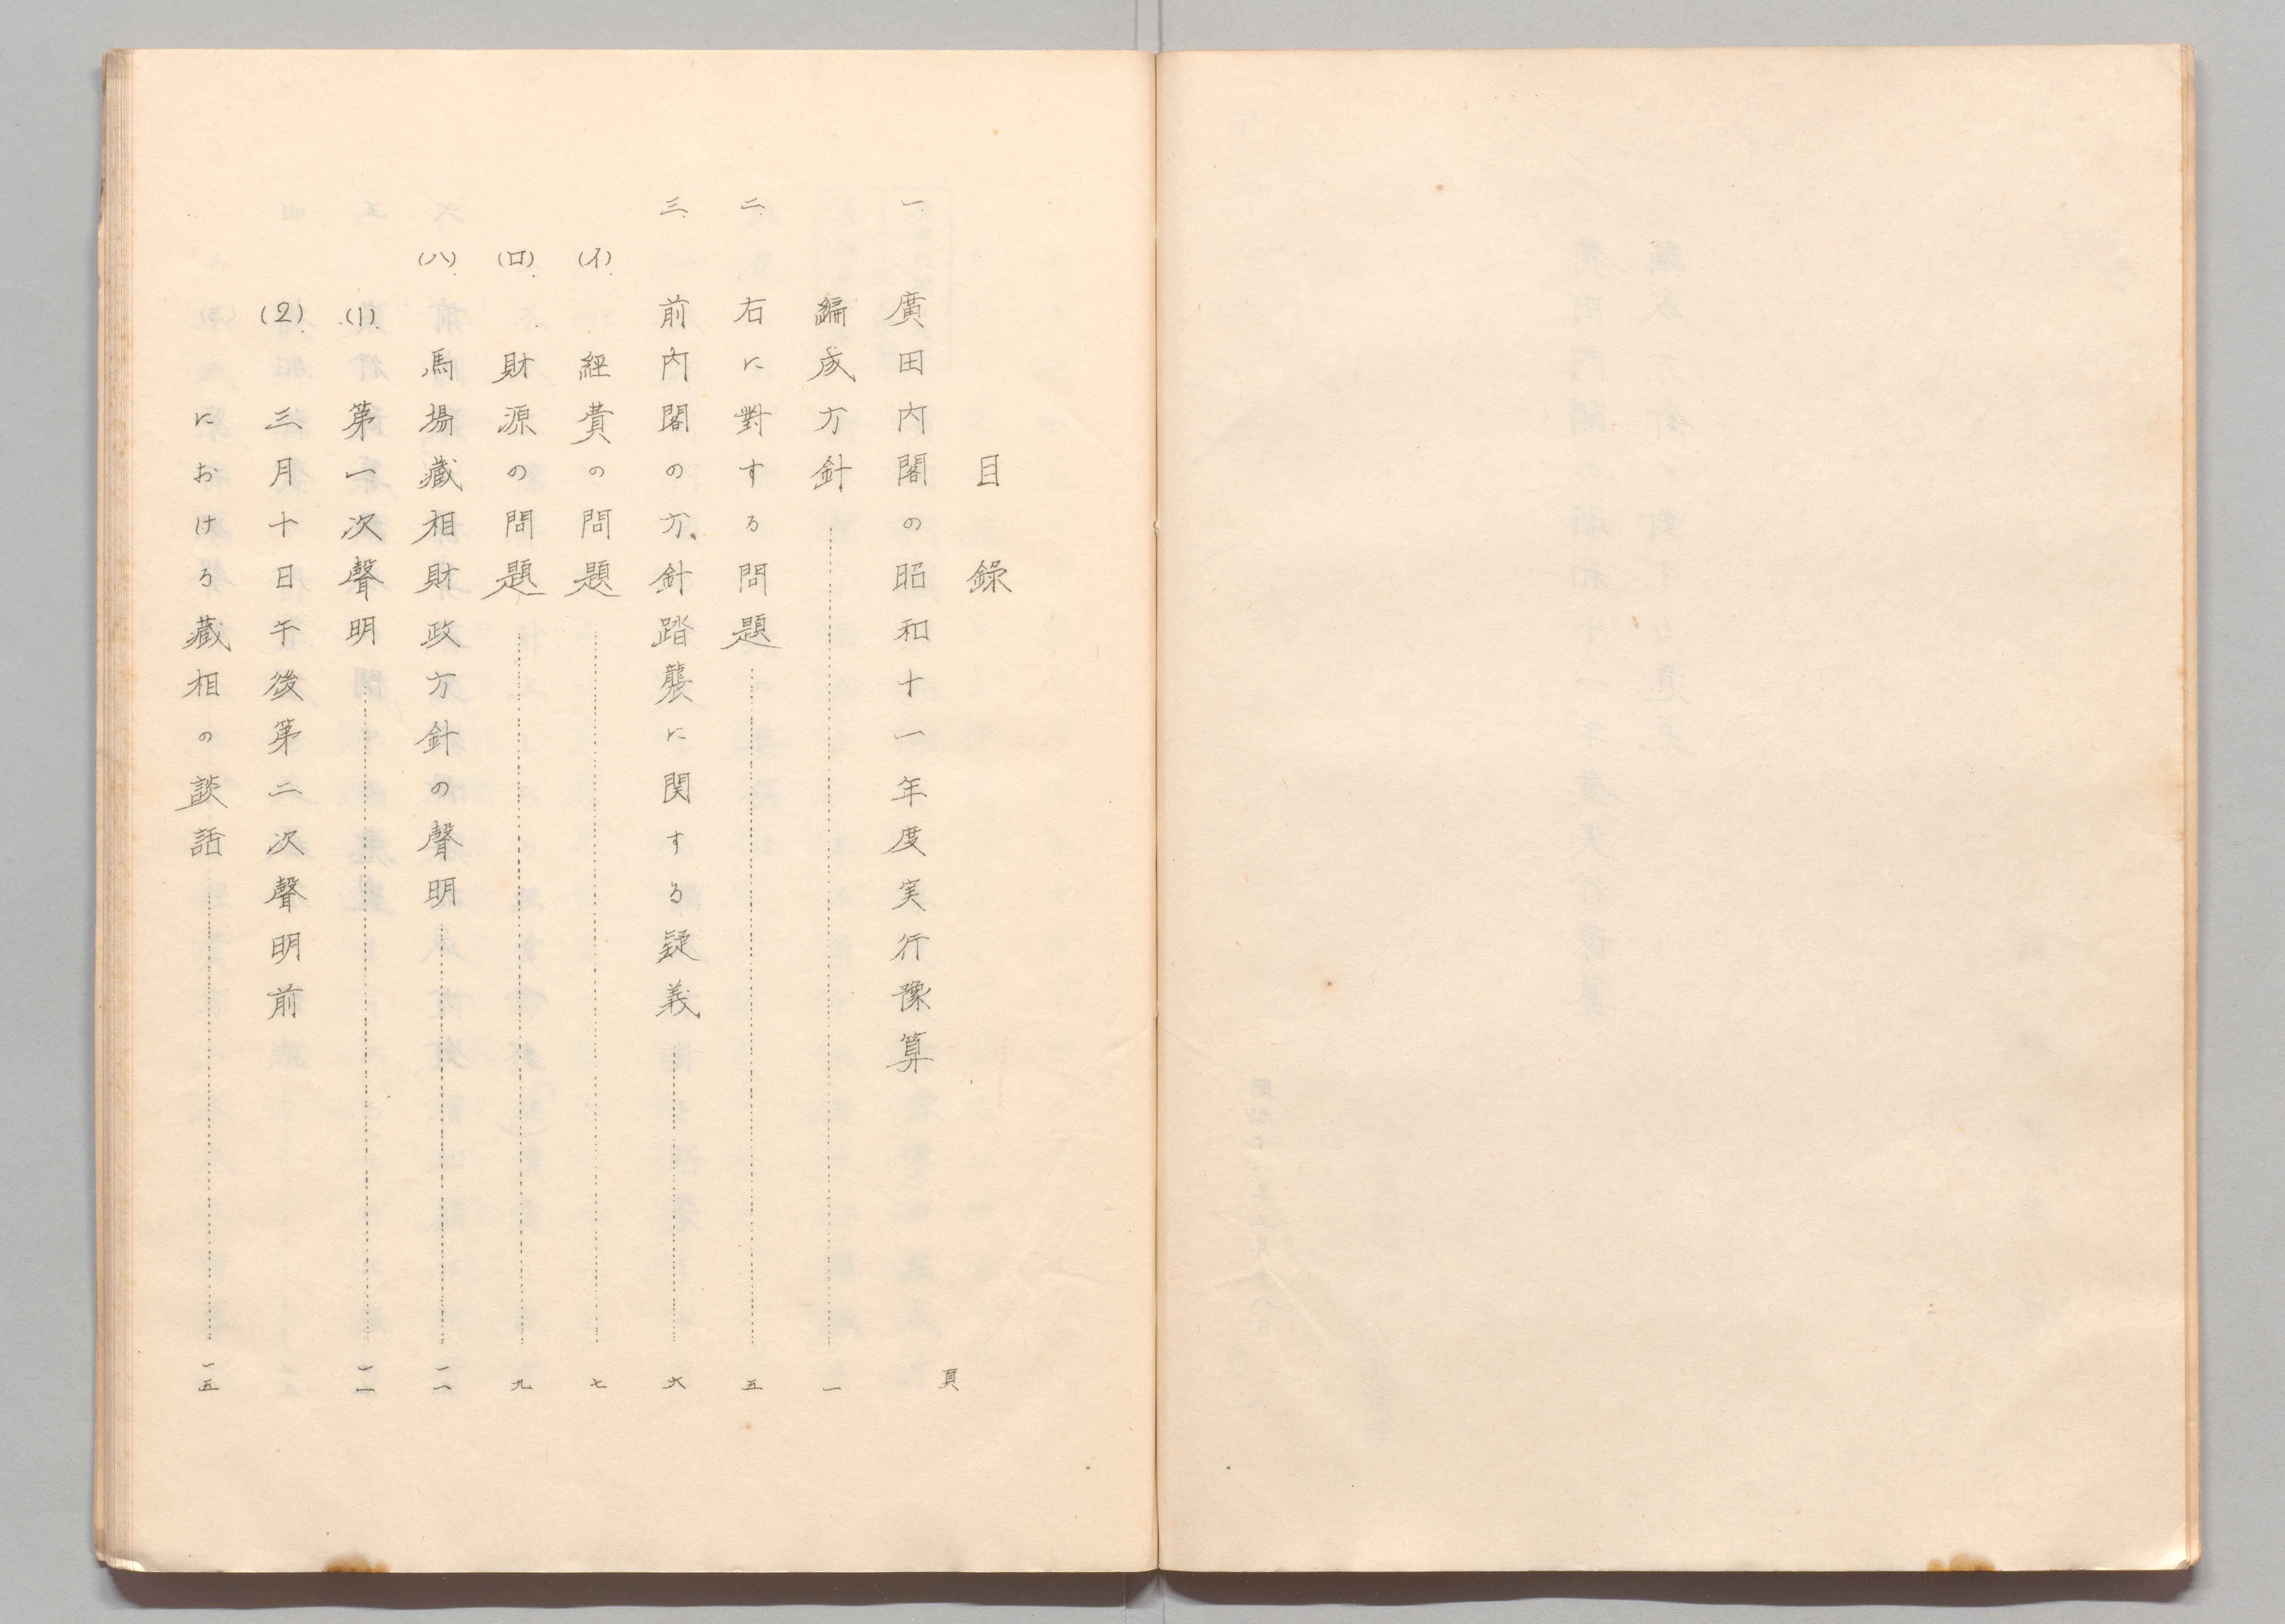 目錄
頁
一 廣田内閣の昭和十一年度実行豫算
編成方針 一
二 右に對する問題 五
三 前内閣の方針踏襲に関する疑義 六
(イ) 經費の問題 七
(ロ) 財源の問題 九
(八) 馬場藏相財政方針の聲明 一一
(1) 第一次聲明 一一
(2) 三月十日午後第二次聲明前
における藏相の談話 一五